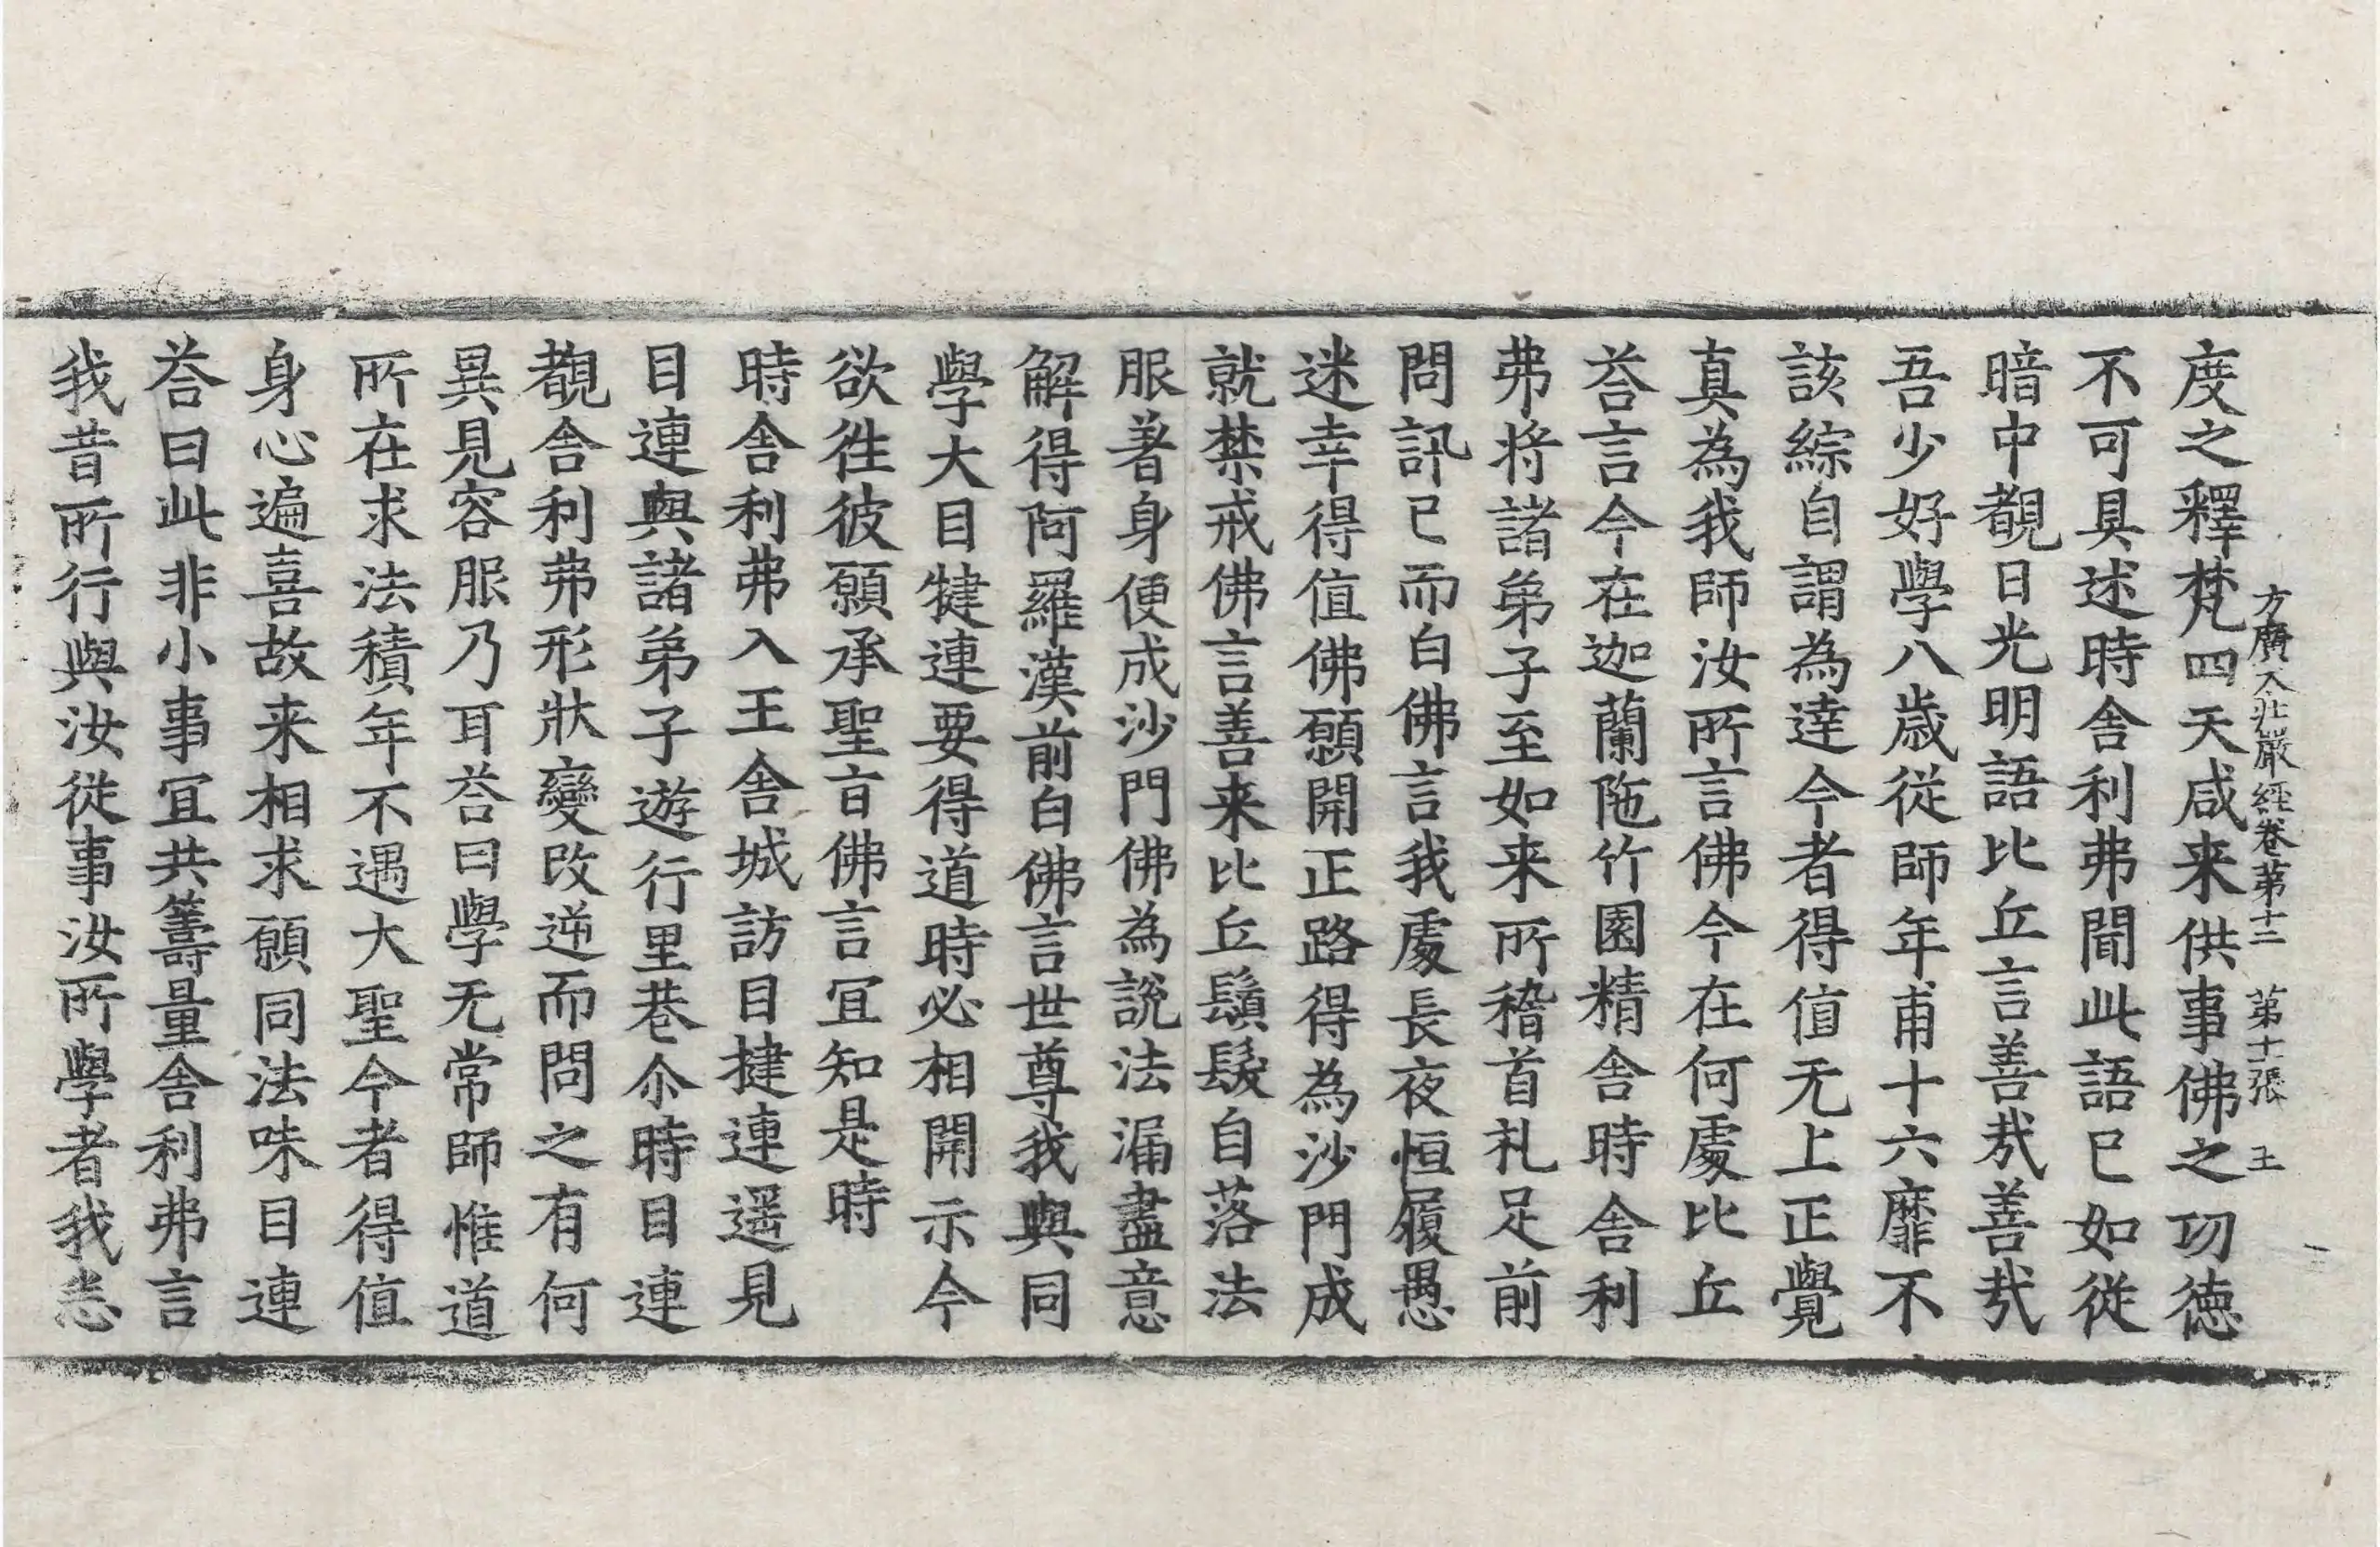 方廣大莊嚴經卷第十二　第十一張　王
度之釋梵四天咸来供事佛之功德
不可具述時舎利弗聞此語已如從
暗中覩日光明語比丘言善㢤善㢤
吾少好學八歳從師年甫十六靡不
該綜自謂為達今者得值无上正覺
真為我師汝所言佛今在何處比丘
荅言今在迦蘭陁竹園精舎時舎利
弗将諸弟子至如来所稽首礼足前
問訊已而白佛言我處長夜恒履愚
迷幸得值佛願開正路得為沙門成
就禁戒佛言善来比丘鬚髮自落法
服著身便成沙門佛為説法漏盡意
解得阿羅漢前白佛言世尊我與同
學大目犍連要得道時必相開示今
欲徃彼願承聖旨佛言冝知是時
時舎利弗入王舎城訪目揵連遥見
目連與諸弟子遊行里巷尒時目連
覩舎利弗形狀變改逆而問之有何
異見容服乃耳荅曰學无常師惟道
所在求法積年不遇大聖今者得值
身心遍喜故来相求願同法味目連
荅曰此非小事冝共籌量舎利弗言
我昔所行與汝從事汝所學者我悉